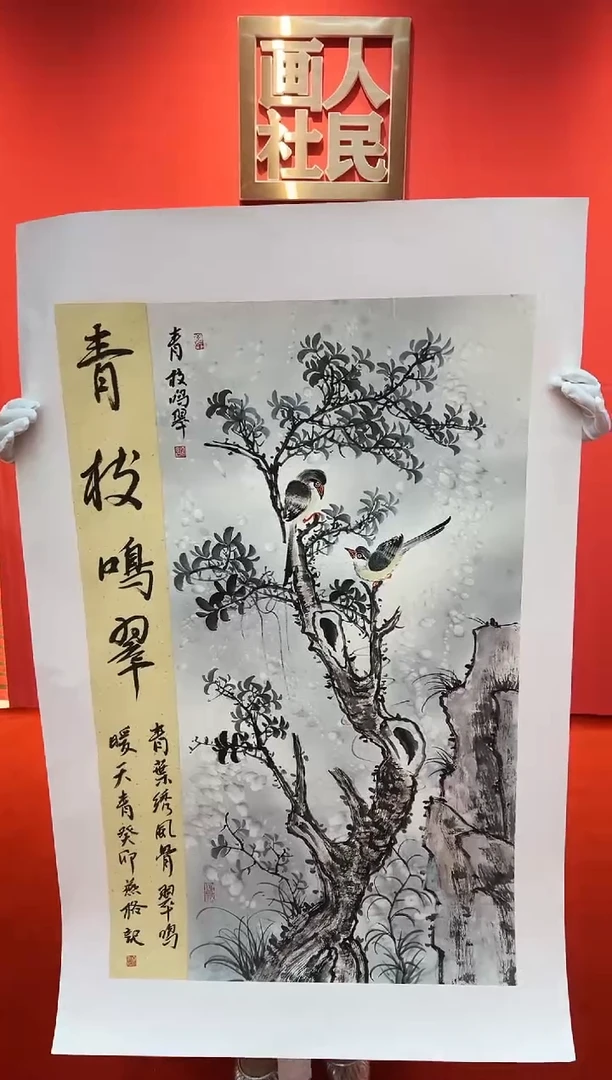 人民
画社
青枝鳴翠
青枝鳴翠
青葉绣風骨翠鳴
暖天青癸卯記